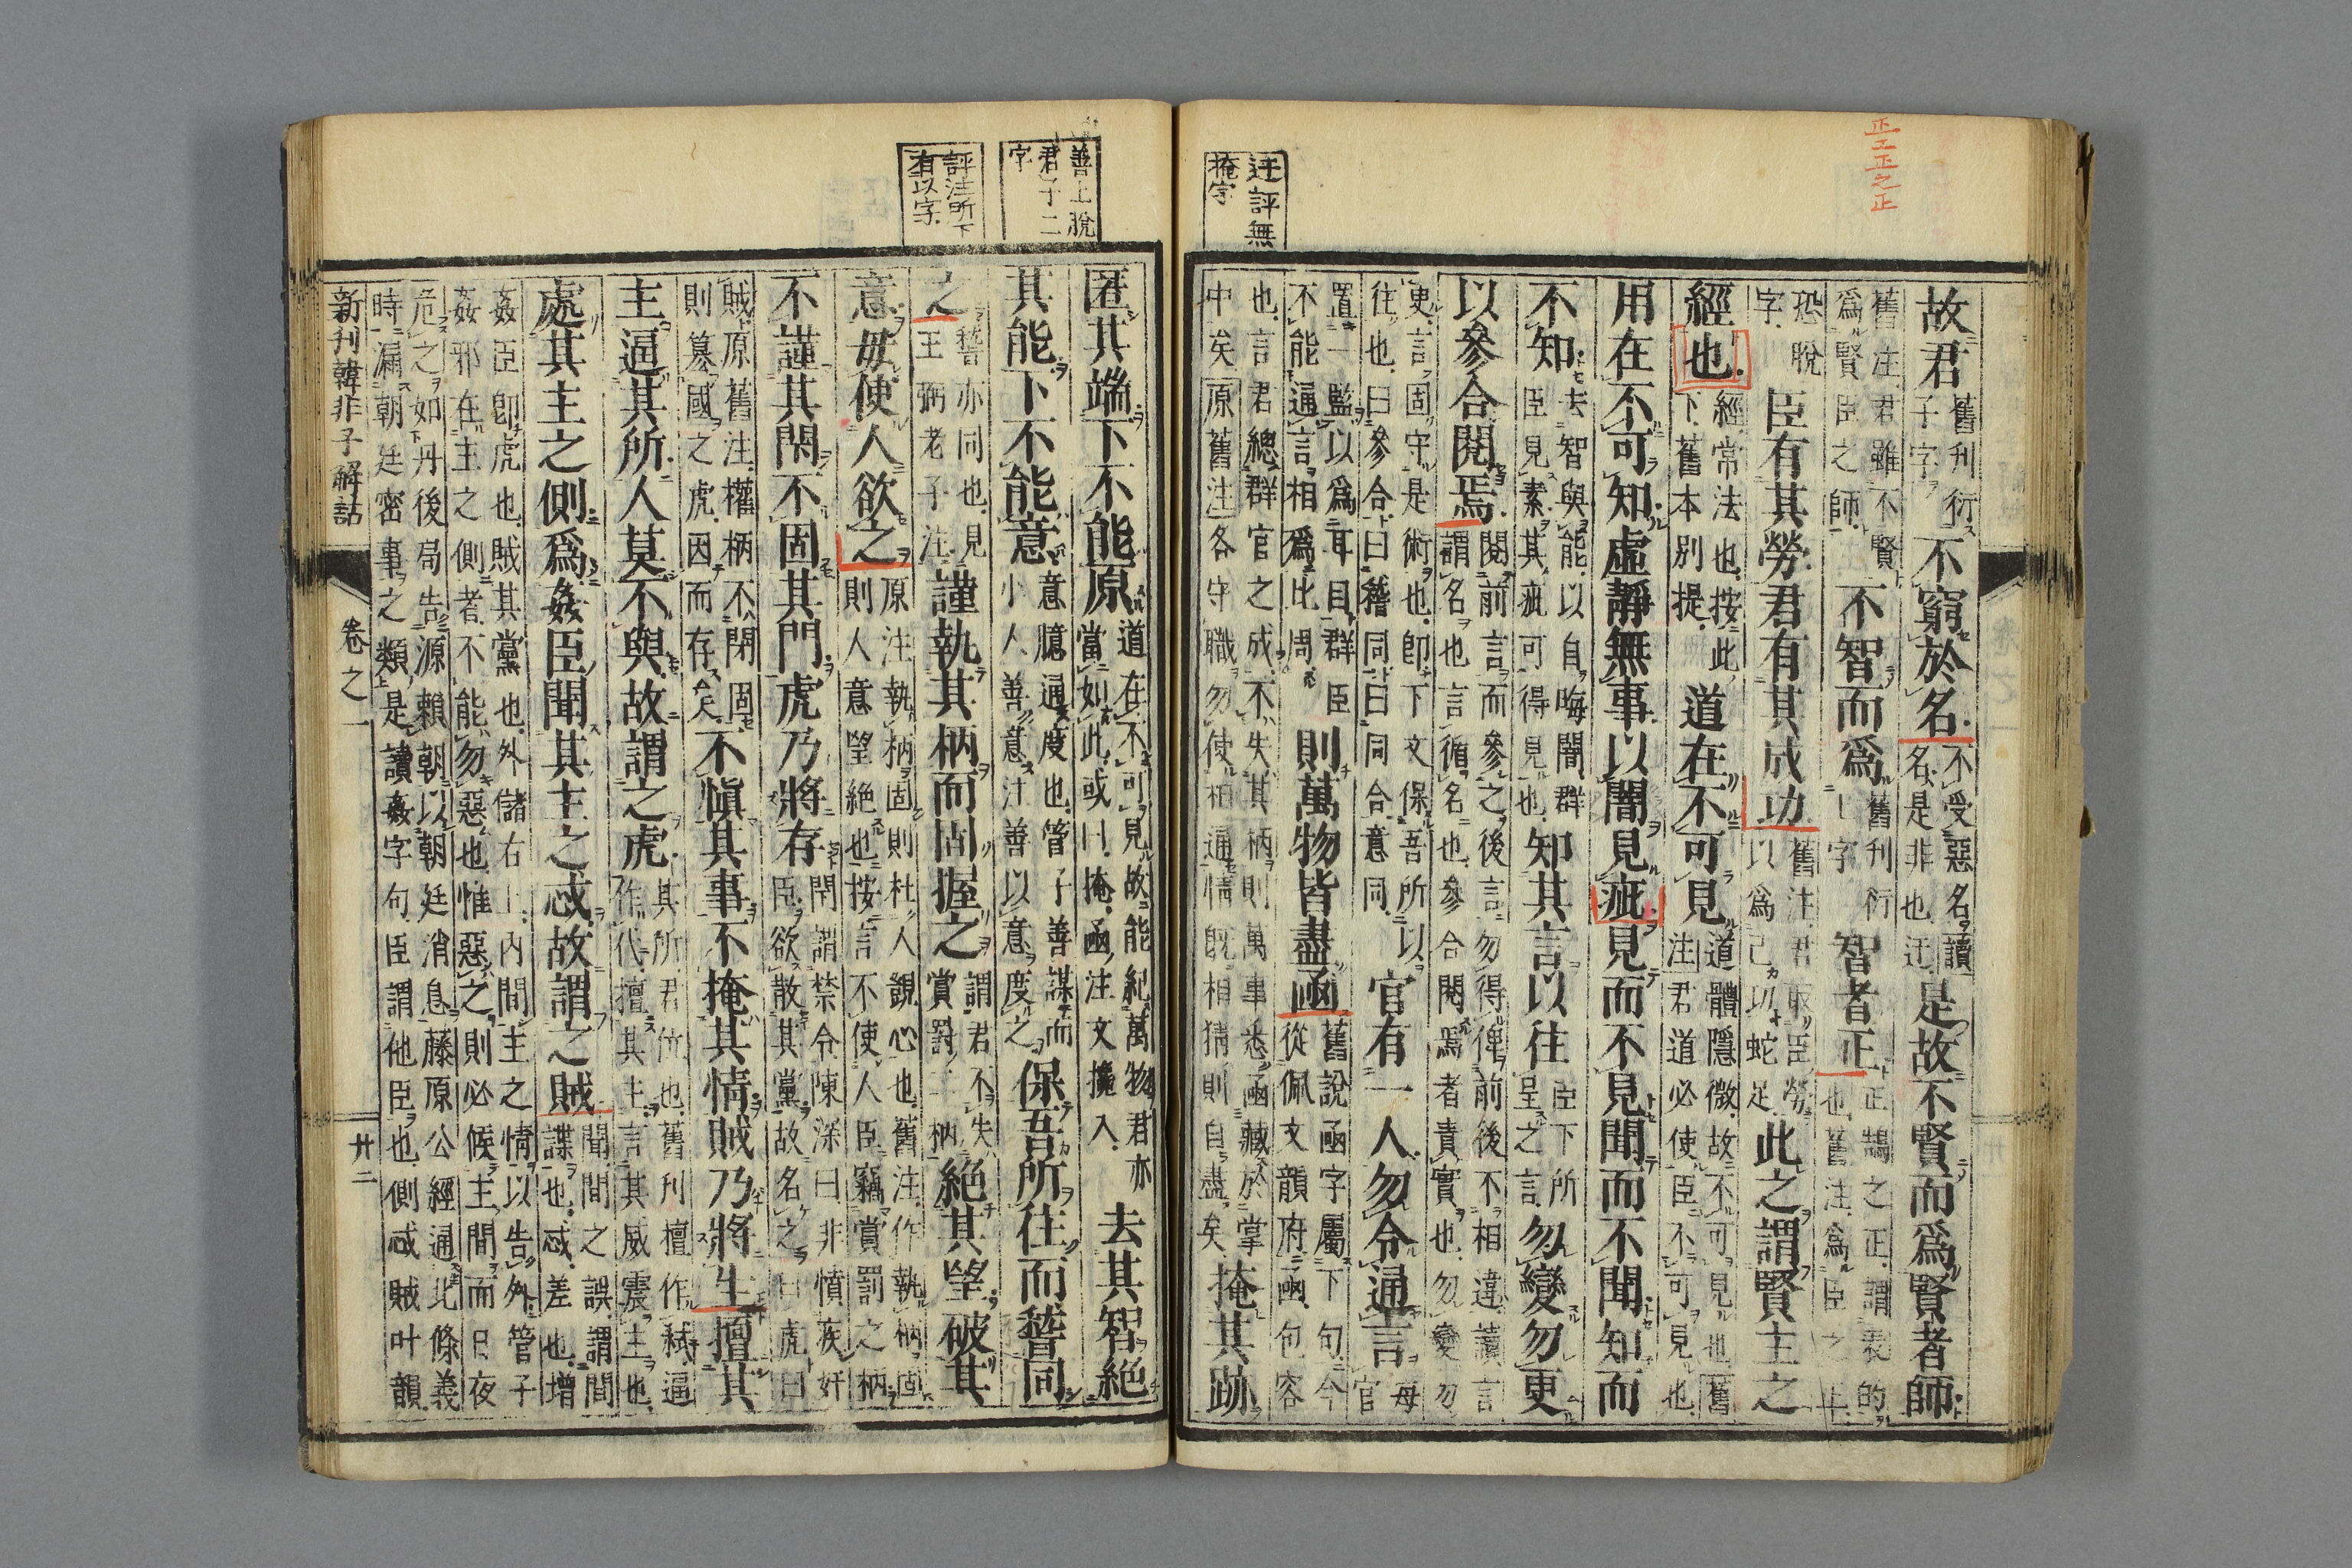 正工正之正
迂評無
掩字
故君舊刊衍子字不窮於名不受惡名讀名是非也迂是故不賢而爲賢者師
舊注君雖不賢爲賢臣之師不智而爲舊刊衍上字智者正正鵠之正謂表的也舊注爲臣之正
恐脫字臣有其勞君有其成功舊注君取臣勞以爲己功蛇足此之謂賢主之
經也經常法也按此下舊本別提道在不可見道體隱微故不可見也舊注君道必使臣不可見也
用在不可知虛靜無事以闇見疵見而不見聞而不聞知而
不知去智與能以自晦闇群臣見素其疵可得見也知其言以往臣下所呈之言勿變勿更
以參合閱焉閱前言而參之後言勿得俾前後不相違讀言謂名也言循名也參合閱焉者責實也勿變勿
更言固守是術也卽下文保吾所以往也曰參合曰稽同曰同合意同官有一人勿令通言每官
置一監以爲耳目群臣不能通言相爲比周則萬物皆盡函舊說函字屬下句今從佩文韻府函句容
也言君總群官之成不失其柄則萬事悉函藏於掌中矣原舊注各守職勿使相通情旣相猜則自盡矣掩其跡
善上脫
君子二
字
評注所下
有以字
匿其端下不能原道在不可見故能紀萬物君亦當如此或曰掩函注文攙入去其智絕
其能下不能意意臆通度也管子善謀而小人善意注善以意度之保吾所以往而稽同
之稽亦同也見王弼老子注謹執其柄而固握之謂君不失賞罰二柄絕其望破其
意毋使人欲之原注執柄固則杜人覬心也舊注作執柄固則人意望絕也按言不使人臣竊賞罰之柄
不謹其閑不固其門虎乃將存閑謂禁令陳深曰非憤疾奸臣欲散其黨故名之曰虎曰
賊原舊注權柄不閑固則簒國之虎因而存矣不愼其事不掩其情賊乃將生擅其
主逼其所人莫不與故謂之虎其所君位也舊刊擅作弑逼作代擅其主言其威震主也
處其主之側爲姦臣聞其主之忒故謂之賊聞間之誤謂間諜也忒差也增
姦臣卽虎也賊其黨也外儲右上內間主之情以告外管子姦邪在主之側者不能勿惡也惟惡之則必候主間而日夜
危之如丹後局告源賴朝以朝廷消息藤原公經通北條義時漏朝廷密事之類是讀姦字句臣謂他臣也側忒賊叶韻
新刊韓非子解詁
卷之一
廿二